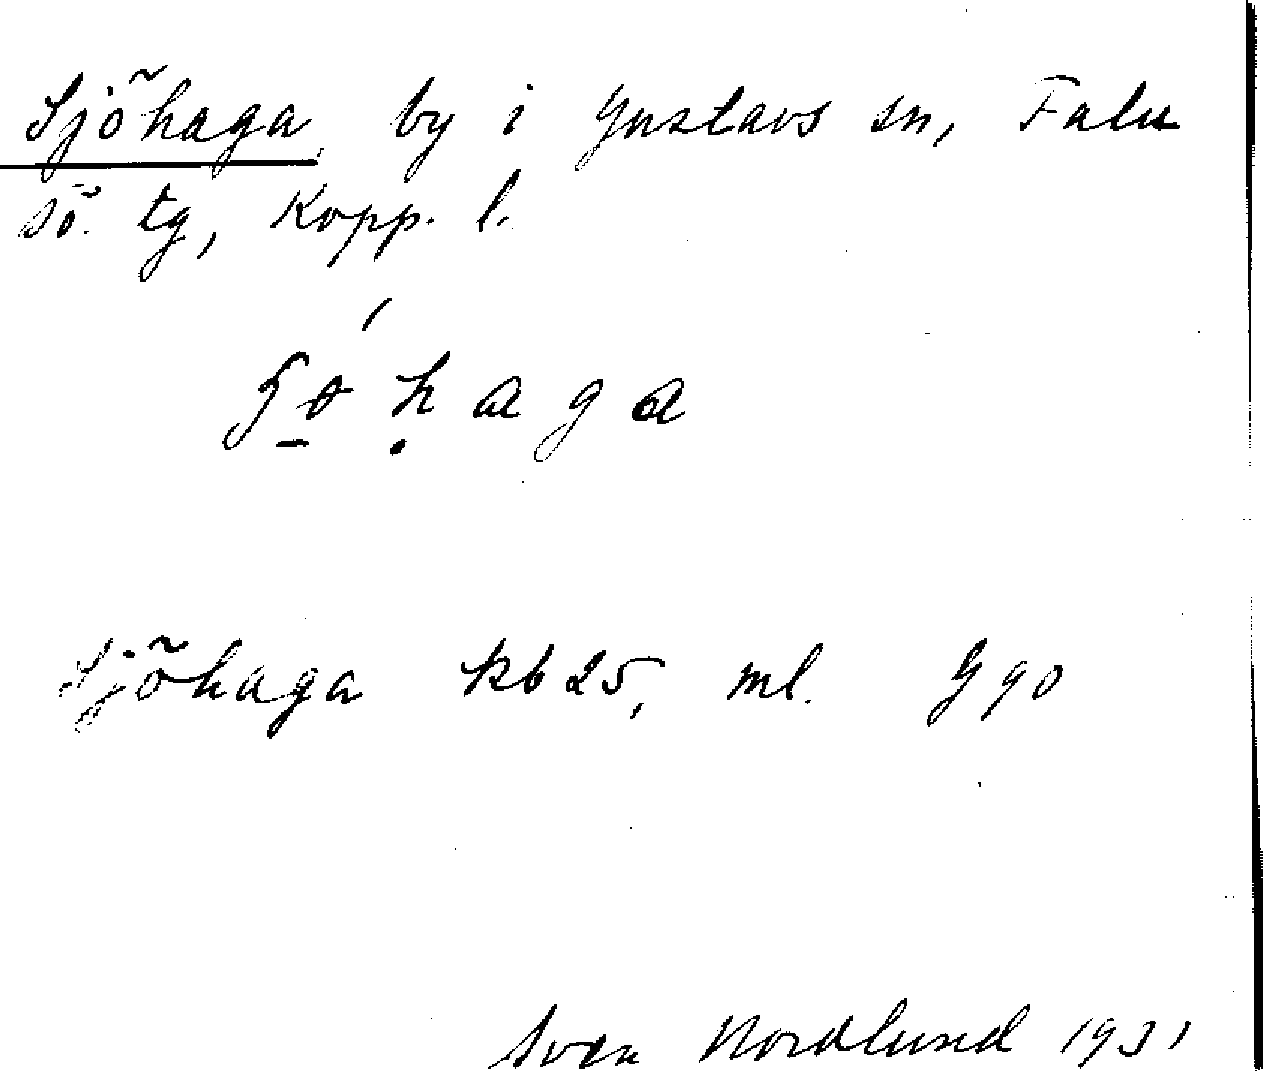 Sjöhaga by i Gustavs sn, Falu
sö. tg, Kopp. l.
Sjöhaga kb 25, ml. G 90
Sven Nordlund 1931